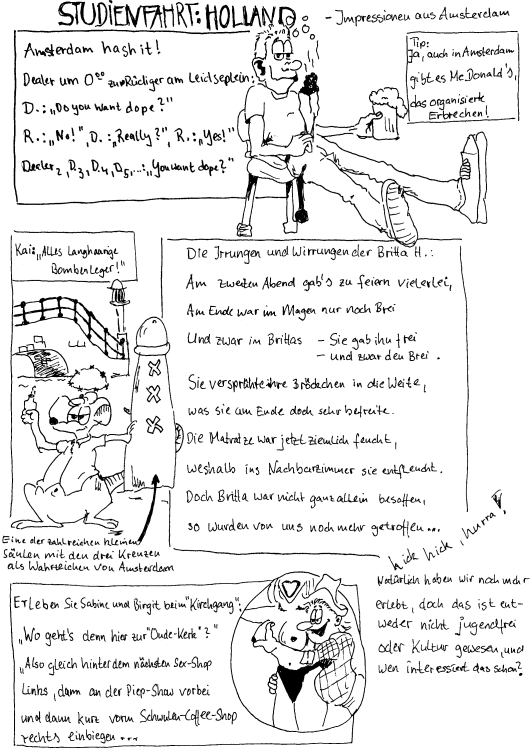 STUDIENFAHRT: HOLLAND
- Impressionen aus Amsterdam
Amsterdam hash it!
Dealer um 0⁰⁰ zu Rüdiger am Leidseplein:
D.: „Do you want dope?"
R.: „No!", D.: „Really?", R.: „Yes!"
Dealer₂, D₃, D₄, D₅,...: „You want dope?"
Tip:
Ja, auch in Amsterdam
gibt es Mc.Donald's,
das organisierte
Erbrechen!
Kai: „Alles langhaarige
Bombenleger!"
XXX
Eine der zahlreichen kleinen
Säulen mit den drei Kreuzen
als Wahrzeichen von Amsterdam
Die Irrungen und Wirrungen der Britta H.:
Am zweiten Abend gab's zu feiern vielerlei,
Am Ende war im Magen nur noch Brei
Und zwar im Brittas - Sie gab ihn frei
- und zwar den Brei.
Sie versprühte ihre Brödchen in die Weite,
was sie am Ende doch sehr befreite.
Die Matratze war jetzt ziemlich feucht,
weshalb ins Nachbarzimmer sie entfleucht.
Doch Britta war nicht ganz allein besoffen,
so wurden von uns noch mehr getroffen...
hick hick, hurra!
Erleben Sie Sabine und Birgit beim "Kirchgang":
„Wo geht's denn hier zur "Oude-Kerk"?"
„Also gleich hinter dem nächsten Sex-Shop
links, dann an der Piep-Show vorbei
und dann kurz vorm Schwulen-Coffee-Shop
rechts einbiegen...
Natürlich haben wir noch mehr
erlebt, doch das ist ent-
weder nicht jugendfrei
oder Kultur gewesen, und
wen interessiert das schon?